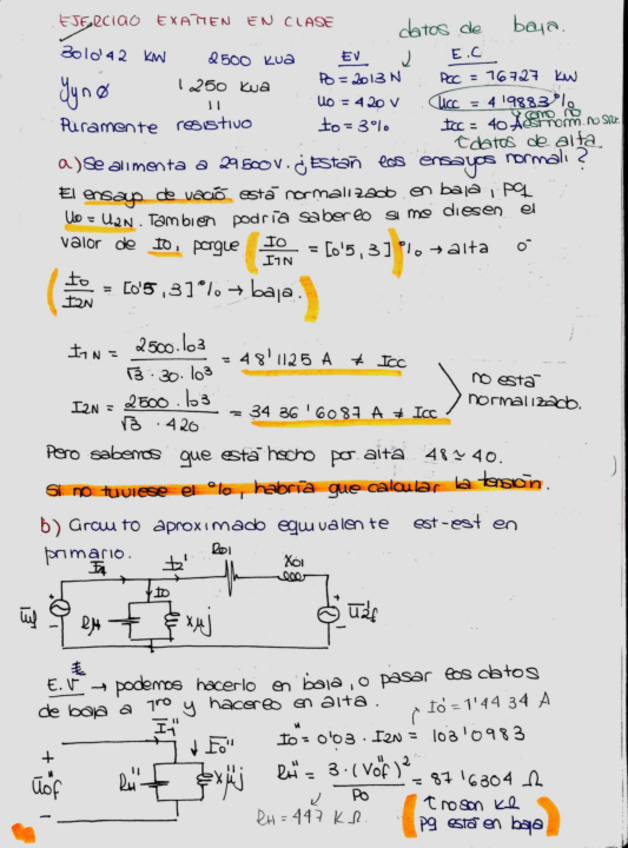 EJERCICIO EXAMEN EN CLASE
datos de baja.
30|0'42 KW 2500 KVA EV E.C
Yyn0 1250 KVA Po = 2013 N Pcc = 76727 KW
|| Uo = 420 V Ucc = 4'9883 %
Puramente resistivo Io = 3% Icc = 40 A
datos de alta.
a) Se alimenta a 29500 V. ¿Están los ensayos normali?
El ensayo de vacío está normalizado en baja, pq
Uo = U2N. Tambien podría saberlo si me diesen el
valor de Io, porque (Io/I1N = [0'5, 3] %) → alta o
(Io/I2N = [0'5, 3] % → baja.)
I1N = 2500·10³ / √3 · 30·10³ = 48'1125 A ≠ Icc
no está
normalizado.
I2N = 2500·10³ / √3 · 420 = 3436'6087 A ≠ Icc
Pero sabemos que está hecho por alta 48 ≃ 40.
Si no tuviese el %, habría que calcular la tensión.
b) Circuito aproximado equivalente est-est en
primario.
I1 I2' Rcc1 Xcc1
Io
U1f Rμ Xμj U2'f
E.V → podemos hacerlo en baja, o pasar los datos
de baja a 1ro y hacerlo en alta.
Io' = 1'4434 A
I1'' Io'' = 0'03 · I2N = 103'0983
+ Io''
Uof'' Rμ'' Xμ''j Rμ'' = 3·(Vof'')² / Po = 87'6304 Ω
- Rμ = 447 KΩ
(↑ no son KΩ
pq está en baja)